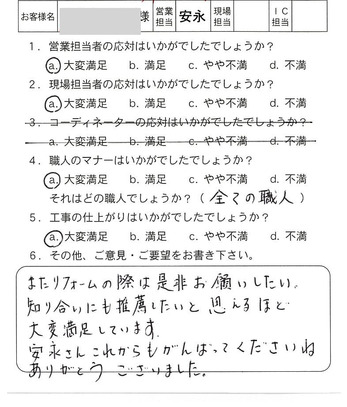 お客様名 様 営業担当 安永 現場担当 IC担当
1．営業担当者の応対はいかがでしたでしょうか？
a. 大変満足 b. 満足 c. やや不満 d. 不満
2．現場担当者の応対はいかがでしたでしょうか？
a. 大変満足 b. 満足 c. やや不満 d. 不満
3．コーディネーターの応対はいかがでしたでしょうか？
a. 大変満足 b. 満足 c. やや不満 d. 不満
4．職人のマナーはいかがでしたでしょうか？
a. 大変満足 b. 満足 c. やや不満 d. 不満
それはどの職人でしょうか？（全ての職人）
5．工事の仕上がりはいかがでしたでしょうか？
a. 大変満足 b. 満足 c. やや不満 d. 不満
6．その他、ご意見・ご要望をお書き下さい。
またリフォームの際は是非お願いしたい。
知り合いにも推薦したいと思えるほど
大変満足しています。
安永さんこれからもがんばってくださいね
ありがとうございました。